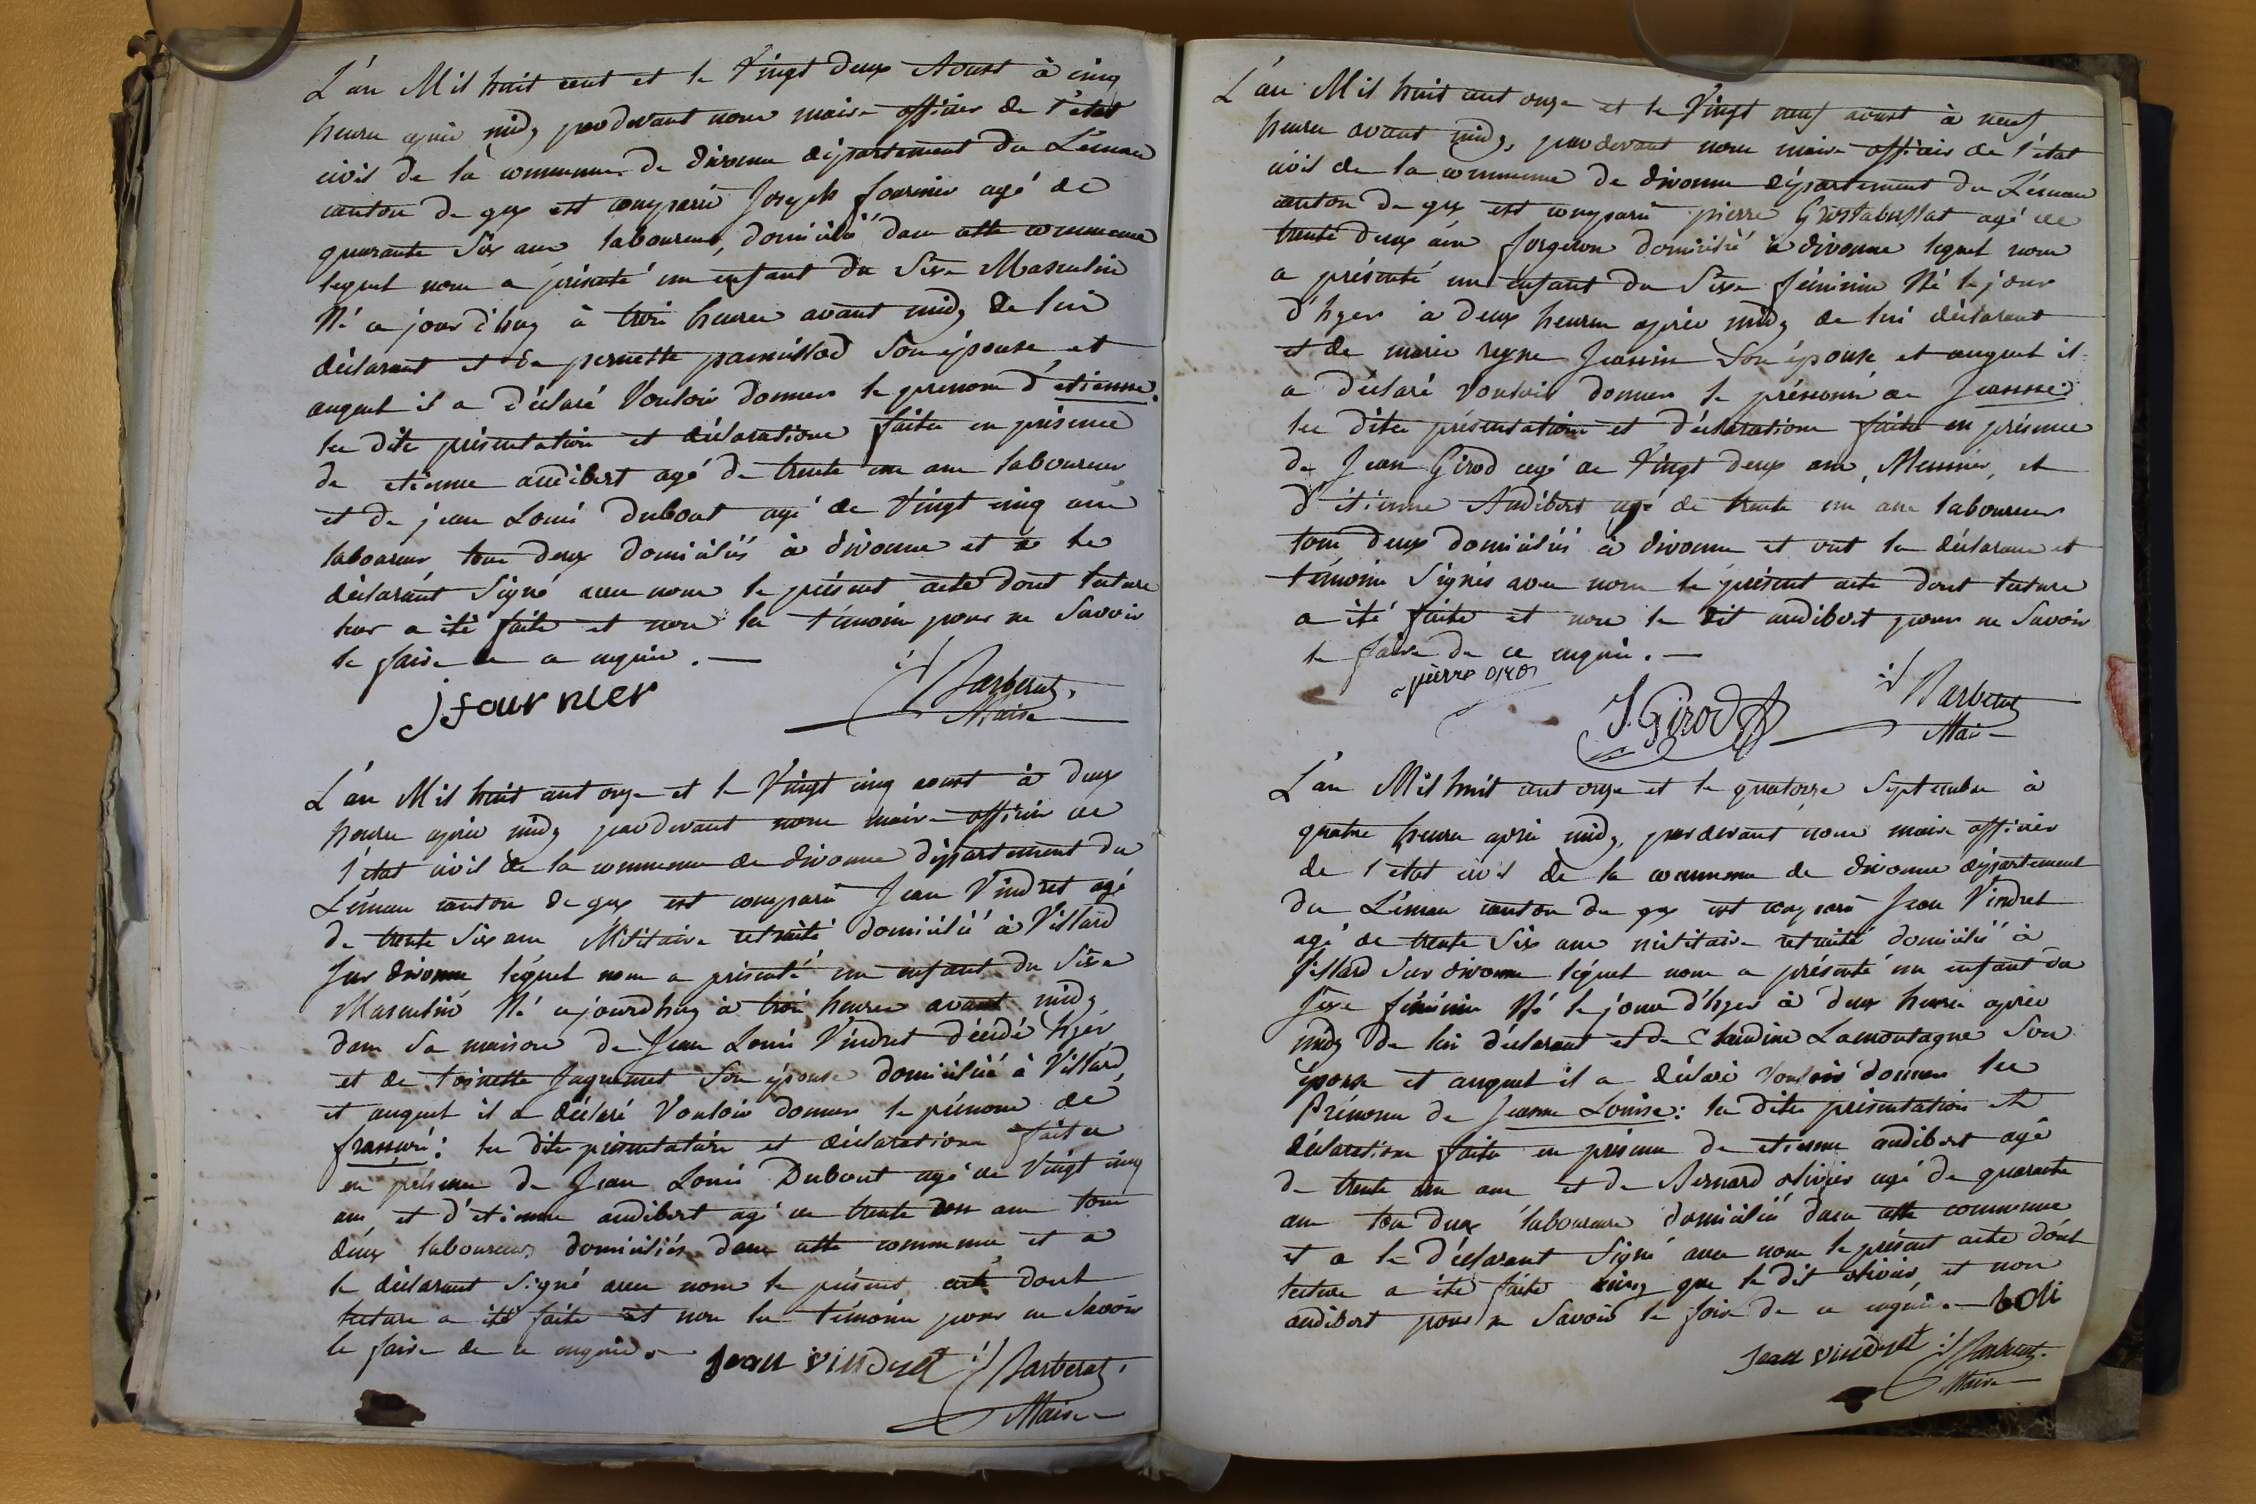 L'an Mil huit cent et le Vingt deux Aoust à cinq
heure après midy pardevant nous maire officier de l'état
civil de la commune de divonne département du Léman
canton de gex est comparu Joseph fournier agé de
quarante six ans laboureur, domicilié dans cette commune
lequel nous a présenté un enfant du Sexe Masculin
Né ce jour d'huy à trois heures avant midy de lui
déclarant et de pernette Son épouse et
auquel il a déclaré Vouloir donner le prenom d'etienne.
les dite présentation et déclaration faites en présence
de etienne audibert agé de trente un ans laboureur
et de jean Louis Dubout agé de Vingt cinq ans
laboureur tous deux domiciliés à divonne et a le
déclarant Signé avec nous le présent acte dont lecture
leur a été faite et non les témoins pour ne Savoir
le faire de ce enquis. —
jfournier
Barberat,
Maire
L'an Mil huit cent onze et le Vingt cinq aoust à deux
heures après midy pardevant nous maire officier de
l'état civil de la commune de divonne département du
Léman canton de gex est comparu Jean Vindret agé
de trente six ans Militaire retraité domicilié à Villard
Sur divonne lequel nous a présenté un enfant du Sexe
Masculin Né cejourdhuy à trois heures avant midy
dans Sa maison de Jean Louis Vindret décédé hyér
et de toinette Jaquemet Son épouse domiciliée à Villard,
et auquel il a déclaré Vouloir donner le prénom de
françois: les dites présentation et déclaration faites
en présence de Jean Louis Dubout agé de Vingt cinq
ans et d'etienne audibert agé de trente un ans tous
deux laboureurs domiciliés dans cette commune et a
le déclarant Signé avec nous le présent acte dont
lecture a été faite et non les témoins pour ne Savoir
le faire de ce enquis. —
Jean vindret
Barberat,
Maire
L'an Mil huit cent onze et le Vingt neuf aoust à neuf
heures avant midy, pardevant nous maire officier de l'état
civil de la commune de divonne département du Léman
canton de gex est comparu pierre Grostabussiat agé de
trente deux ans forgeron domicilié à divonne lequel nous
a présenté un enfant du Sexe féminin Né le jour
d'hyer à deux heures après midy de lui déclarant
et de marie reyne Jeannin Son épouse et auquel il
a déclaré vouloir donner le prénom de Jeanne.
les dites présentation et déclaration faites en présence
de Jean Girod agé de Vingt deux ans, Meunier, et
d'étienne Audibert agé de trente un ans laboureur
tous deux domiciliés à divonne et ont les déclarant et
témoins Signés avec nous le présent acte dont lecture
a été faite et non le dit audibert pour ne Savoir
le faire de ce enquis. —
pierre
J. Girod
Barberat
Maire
L'an Mil huit cent onze et le quatorze Septembre à
quatre heures après midy, pardevant nous maire officier
de l'état civil de la commune de divonne département
du Léman canton de gex est comparu Jean Vindret
agé de trente Six ans militaire retraité domicilié à
Villard Sur divonne lequel nous a présenté un enfant du
Sexe féminin Né le jour d'hyer à deux heures après
midy de lui déclarant et de Claudine Lamontagne Son
épouse et auquel il a déclaré Vouloir donner les
Prénoms de Jeanne Louise: les dites présentation et
déclaration faites en présence de etienne audibert agé
de trente un ans et de Bernard olivier agé de quarante
ans tous deux laboureurs domiciliés dans cette commune
et a le déclarant Signé avec nous le présent acte dont
lecture a été faite ainsy que le dit olivier et non
audibert pour ne Savoir le faire de ce enquis. —
Jean vindret
Barberat.
Maire